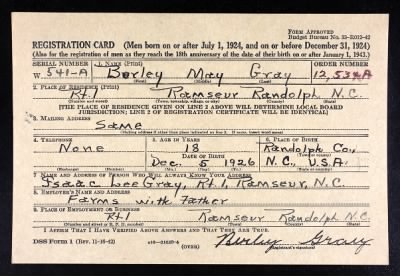 FORM APPROVED
Budget Bureau No. 33-R012-42
REGISTRATION CARD (Men born on or after July 1, 1924, and on or before December 31, 1924)
(Also for the registration of men as they reach the 18th anniversary of the date of their birth on or after January 1, 1943.)
SERIAL NUMBER 1. NAME (Print) ORDER NUMBER
W 541-A Berley May Gray 12,534-A
2. PLACE OF RESIDENCE (Print)
Rt.1 Ramseur Randolph N.C.
[THE PLACE OF RESIDENCE GIVEN ON LINE 2 ABOVE WILL DETERMINE LOCAL BOARD
JURISDICTION; LINE 2 OF REGISTRATION CERTIFICATE WILL BE IDENTICAL]
3. MAILING ADDRESS
Same
[Mailing address if other than place indicated on line 2. If same, insert word same]
4. TELEPHONE 5. AGE IN YEARS 6. PLACE OF BIRTH
None 18 Randolph Co.,
DATE OF BIRTH
Dec. 5 1926 N.C., U.S.A.
7. NAME AND ADDRESS OF PERSON WHO WILL ALWAYS KNOW YOUR ADDRESS
Isaac Lee Gray, Rt.1, Ramseur, N.C.
8. EMPLOYER'S NAME AND ADDRESS
Farms with Father
9. PLACE OF EMPLOYMENT OR BUSINESS
Rt.1 Ramseur Randolph N.C.
I AFFIRM THAT I HAVE VERIFIED ABOVE ANSWERS AND THAT THEY ARE TRUE.
DSS Form 1 (Rev. 11-16-42) (OVER) Burley Gray
(Registrant's signature)